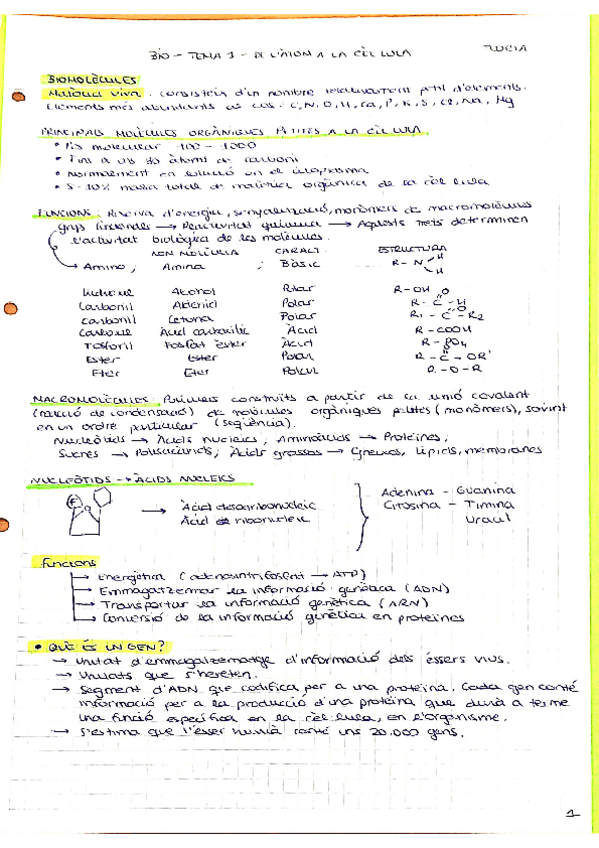 BIO - TEMA 1 - DE L'ÀTOM A LA CÈL·LULA
BIOMOLÈCULES
Matèria viva: consisteix d'un nombre relativament petit d'elements.
Elements més abundants es cos: C, N, O, H, Ca, P, K, S, Cl, Na, Mg
PRINCIPALS MOLÈCULES ORGÀNIQUES PETITES A LA CÈL·LULA
• Pes molecular 100 - 1000
• Fins a uns 30 àtoms de carboni
• Normalment en solució en el citoplasma
• 5 - 10% massa total de matèria orgànica de la cèl·lula
FUNCIONS: Reserva d'energia, senyalització, monòmers de macromolècules
grups funcionals → Reactivitat química → Aquests trets determinen
l'activitat biològica de les molècules.
NOM MOLÈCULA CARÀCT. ESTRUCTURA
→ Amino ; Amina ; Bàsic R - N H H
Hidroxil Alcohol Polar R - OH
Carbonil Aldehid Polar R - C - H O
Carbonil Cetona Polar R1 - C - R2 O
Carboxil Àcid carboxílic Àcid R - COOH
Fosforil Fosfat èster Àcid R - PO4
Ester Ester Polar R - C - OR' O
Eter Eter Polar R - O - R
MACROMOLÈCULES: Polímers construïts a partir de la unió covalent
(reacció de condensació) de molècules orgàniques petites (monòmers), sovint
en un ordre particular (seqüència).
Nucleòtids → Àcids nucleics; Aminoàcids → Proteïnes;
Sucres → Polisacàrids; Àcids grassos → Greixos, lípids, membranes
NUCLEÒTIDS → ÀCIDS NUCLEICS
→ Àcid desoxiribonucleic
Àcid ribonucleic
Adenina - Guanina
Citosina - Timina
Uracil
Funcions
→ Energètica (→ ATP)
→ Emmagatzemar la informació genètica (ADN)
→ Transportar la informació genètica (ARN)
→ Conversió de la informació genètica en proteïnes
• QUÈ ÉS UN GEN?
→ Unitat d'emmagatzematge d'informació dels éssers vius.
→ Unitats que s'hereten.
→ Segment d'ADN que codifica per a una proteïna. Cada gen conté
informació per a la producció d'una proteïna que durà a terme
una funció específica en la cèl·lula, en l'organisme.
→ S'estima que l'ésser humà conté uns 20.000 gens.
1